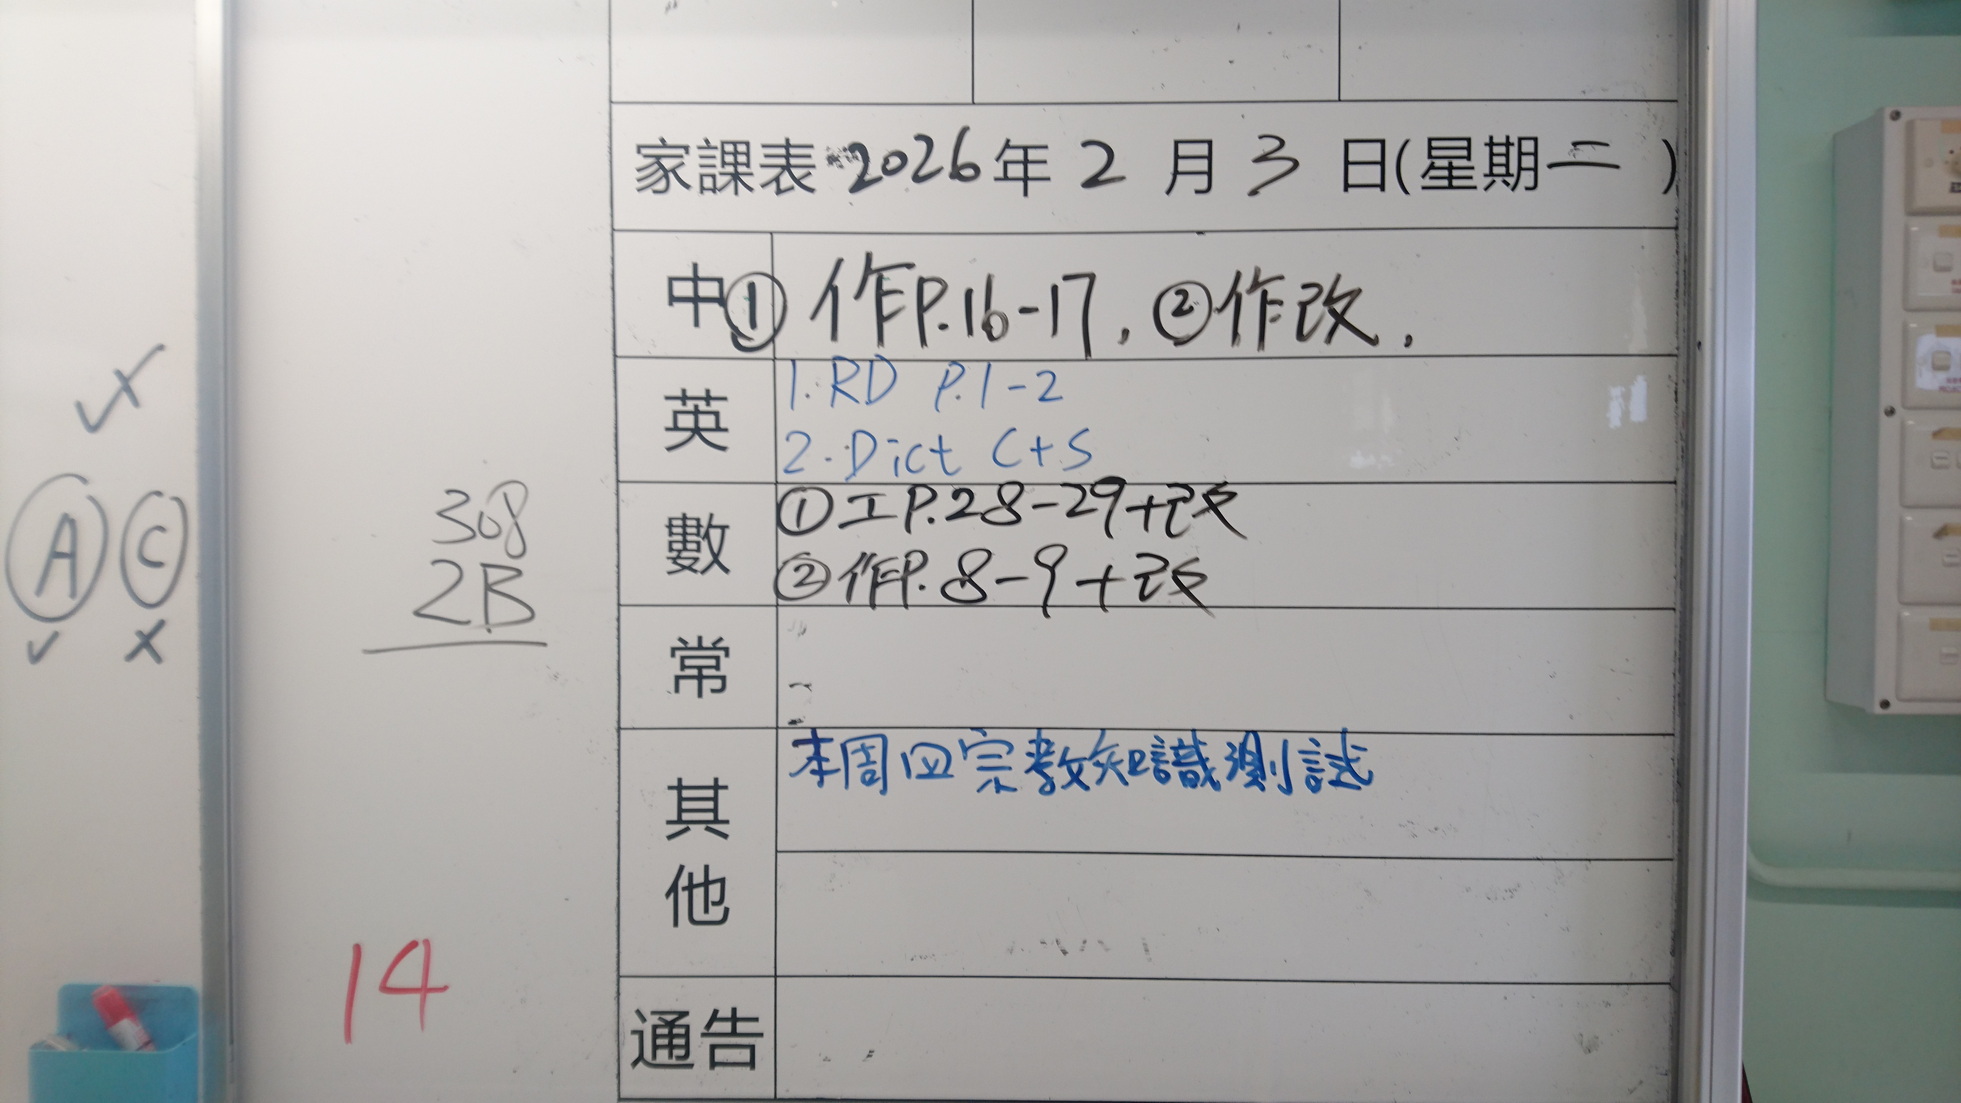 家課表 2026年 2 月 3 日(星期二 )
中 ① 作P.16-17, ②作改.
英 1. RD P.1-2
2. Dict C+S
數 ①工P.28-29+改
②作P.8-9+改
常
其他 本周四宗教知識測試
通告
A C
308
2B
14